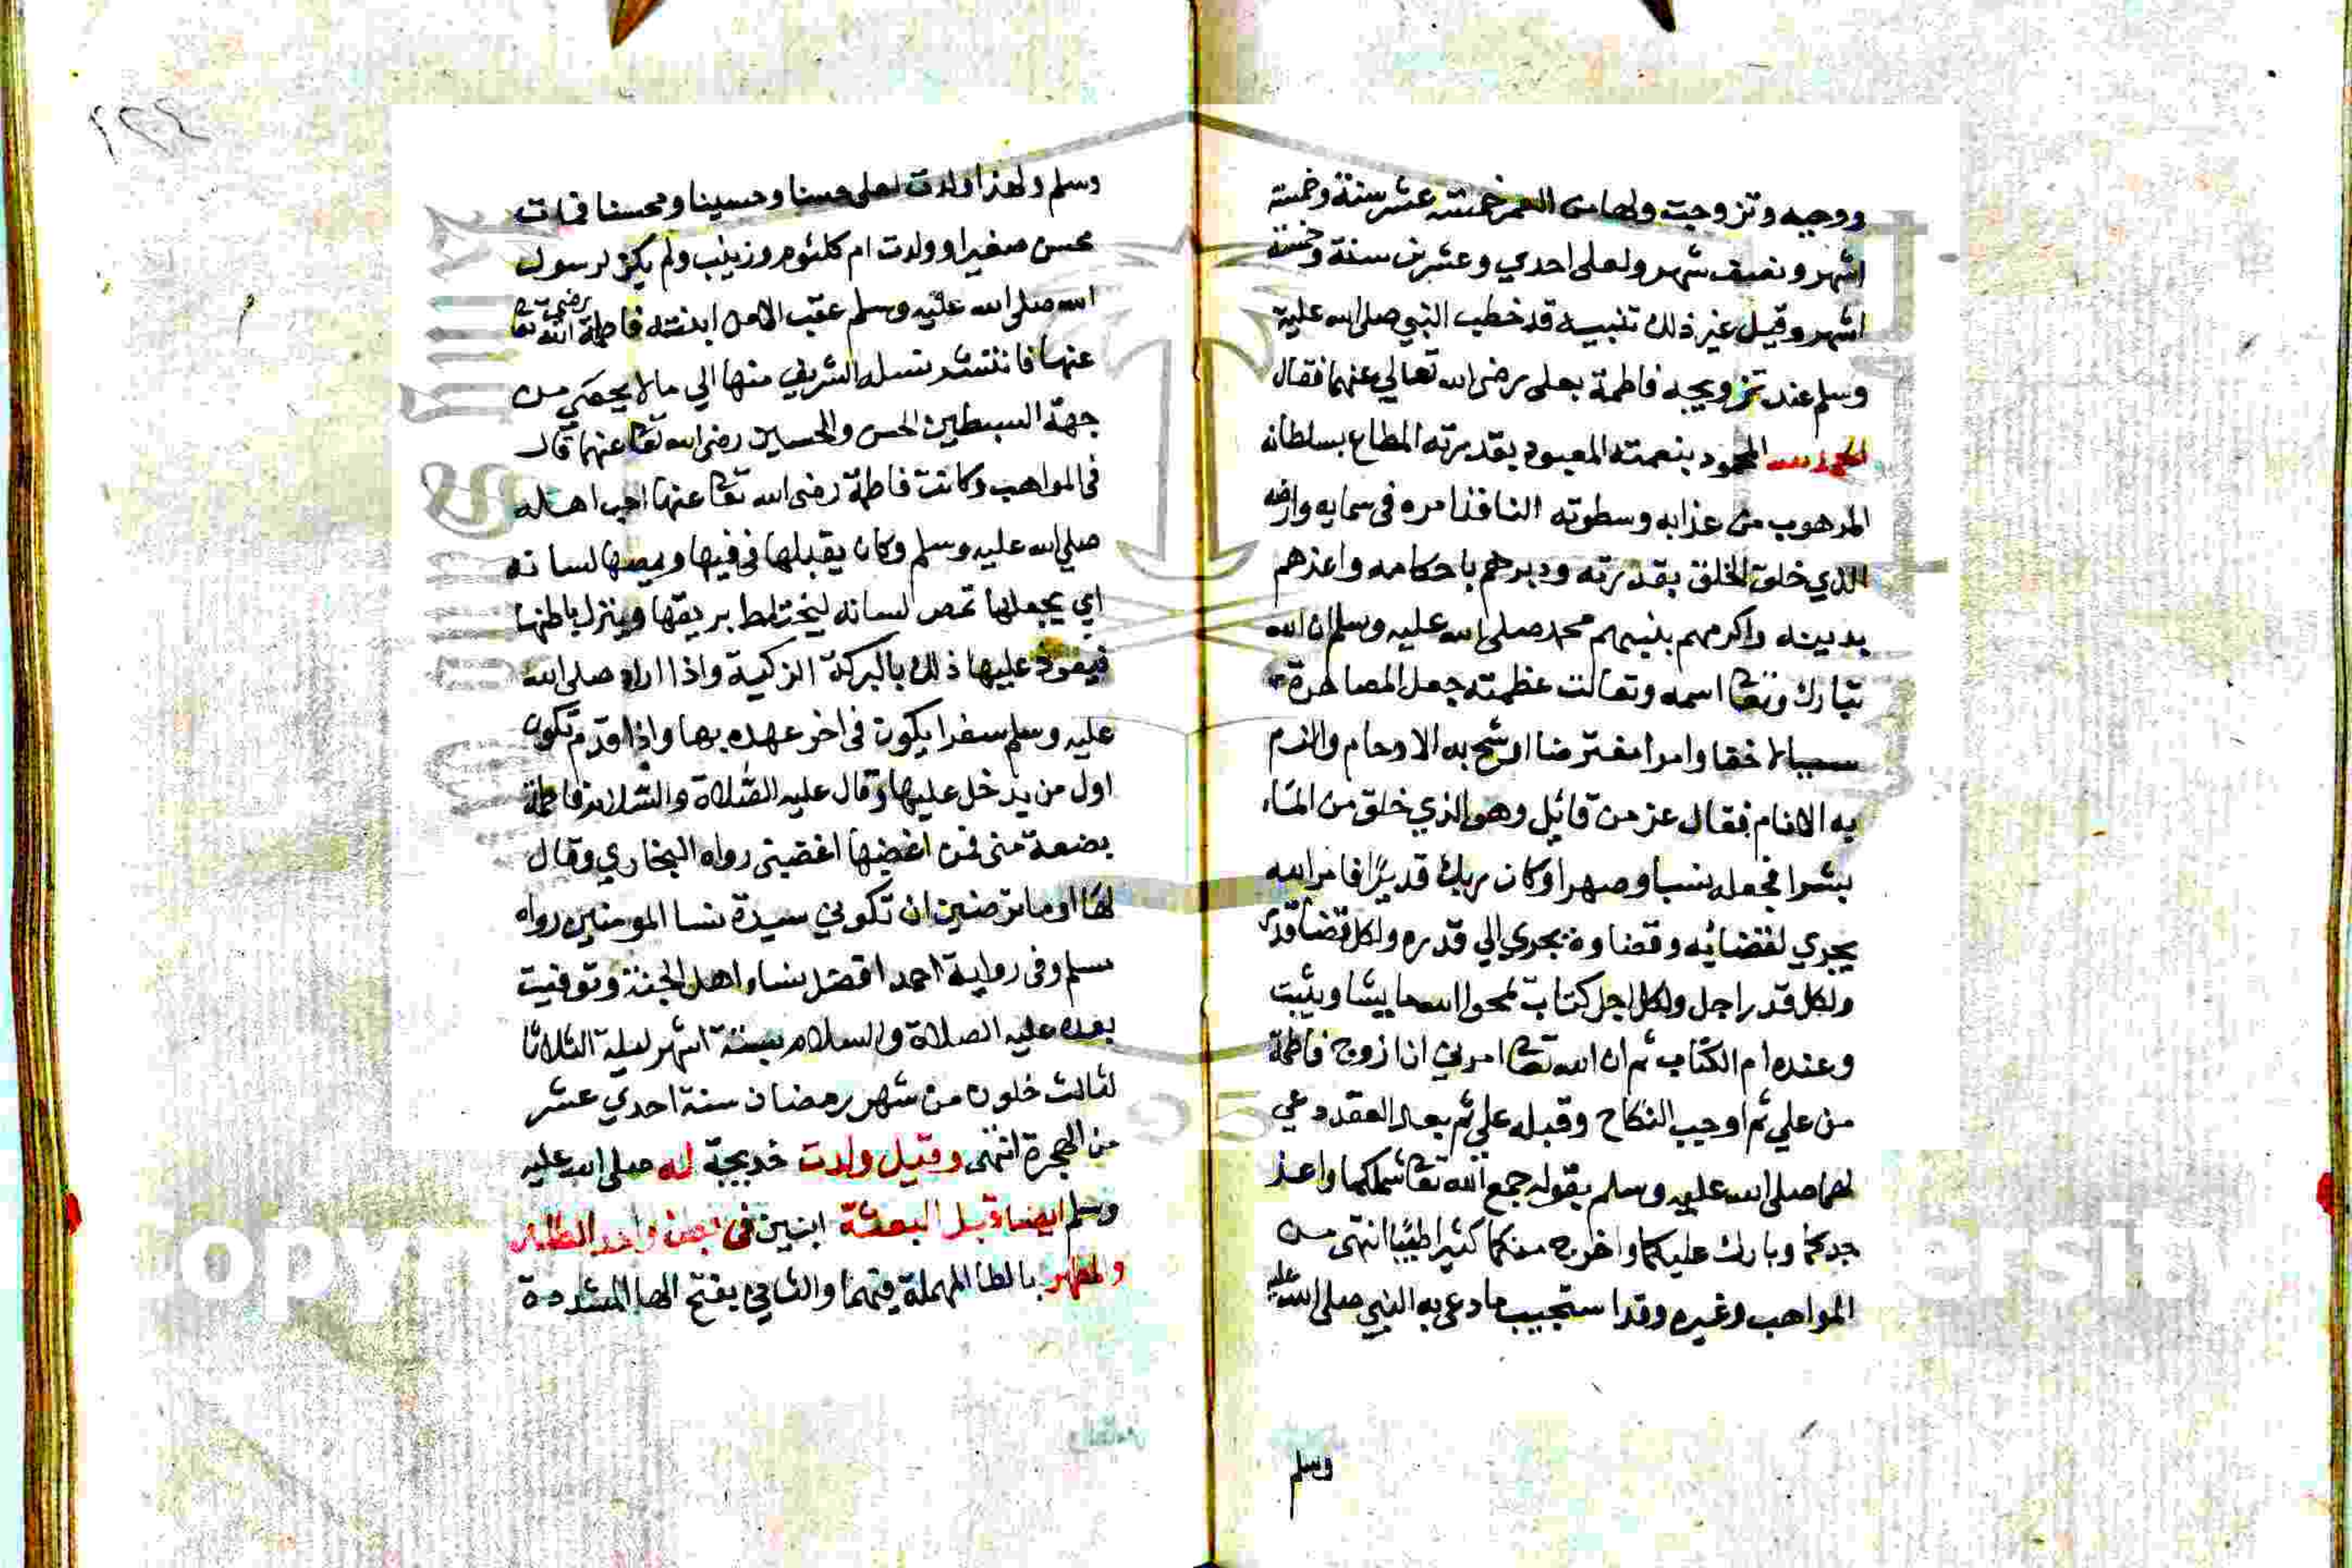 ووحيه وتزوجت ولها من العمر خمسة عشر سنة وخمسة
اشهر ونصف شهر ولعلي احدي وعشرين سنة وخمسة
اشهر وقيل غير ذلك تنبيه قد خطب النبي صلى الله عليه
وسلم عند تزويجه فاطمة بعلي رضى الله تعالي عنهما فقال
الحمد لله المحمود بنعمته المعبود بقدرته المطاع بسلطانه
المرهوب من عذابه وسطوته النافذ امره في سمايه وارضه
الذي خلق الخلق بقدرته ودبرهم باحكامه واعذهم
بدينه واكرمهم بنبيهم محمد صلى الله عليه وسلم ان الله
تبارك وتعا اسمه وتعالت عظمته جعل المصاهرة
سببا لاحقا وامرا مفترضا اوشج به الارحام والزم
به الانام فقال عز من قائل وهو الذي خلق من الماء
بشرا فجعله نسبا وصهرا وكان ربك قديرا فامر الله
يجري لقضائه وقضاوه يجري الي قدره ولكل قضا قدر
ولكل قدر اجل ولكل اجل كتاب يمحوا الله ما يشا ويثبت
وعنده ام الكتاب ثم ان الله تعا امرني ان ازوج فاطمة
من علي ثم اوجب النكاح وقبله علي ثم بعد العقد دعي
لهما صلى الله عليه وسلم بقوله جمع الله تعا شملكما واعز
جدكما وبارك عليكما واخرج منكما كثيرا طيبا انتهى من
المواهب وغيره وقد استجيب ما دعى به النبي صلى الله عليه
وسلم
١٢٤
وسلم ولهذا ولدت لعلي حسنا وحسينا ومحسنا فمات
محسن صغيرا وولدت ام كلثوم وزينب ولم يكن لرسول
الله صلى الله عليه وسلم عقب الا من ابنته فاطمة رضي الله تعا
عنها فانتشر نسله الشريف منها الي ما لا يحصي من
جهة السبطين الحسن والحسين رضى الله تعا عنهما قال
في المواهب وكانت فاطمة رضى الله تعا عنها احب اهله
صلى الله عليه وسلم وكان يقبلها في فيها ويمصها لسانه
اي يجعلها تمص لسانه ليختلط بريقها وينزل باطنها
فيعود عليها ذلك بالبركة الزكية واذا اراد صلى الله
عليه وسلم سفرا يكون في اخر عهده بها واذا قدم تكون
اول من يدخل عليها وقال عليه الصلاة والسلام فاطمة
بضعة مني فمن اغضبها اغضبني رواه البخاري وقال
لها اوما ترضين ان تكوني سيدة نسا المومنين رواه
مسلم وفي رواية احمد افضل نساء اهل الجنة وتوفيت
بعده عليه الصلاة والسلام بستة اشهر ليلة الثلاثا
لثالث خلون من شهر رمضان سنة احدي عشر
من الهجرة انتهى وقيل ولدت خديجة له صلى الله عليه
وسلم ايضا قبل البعثة ابنين في بطن واحد الطاهر
والمطهر بالطا المهملة فيهما والثاني بفتح الها المشددة